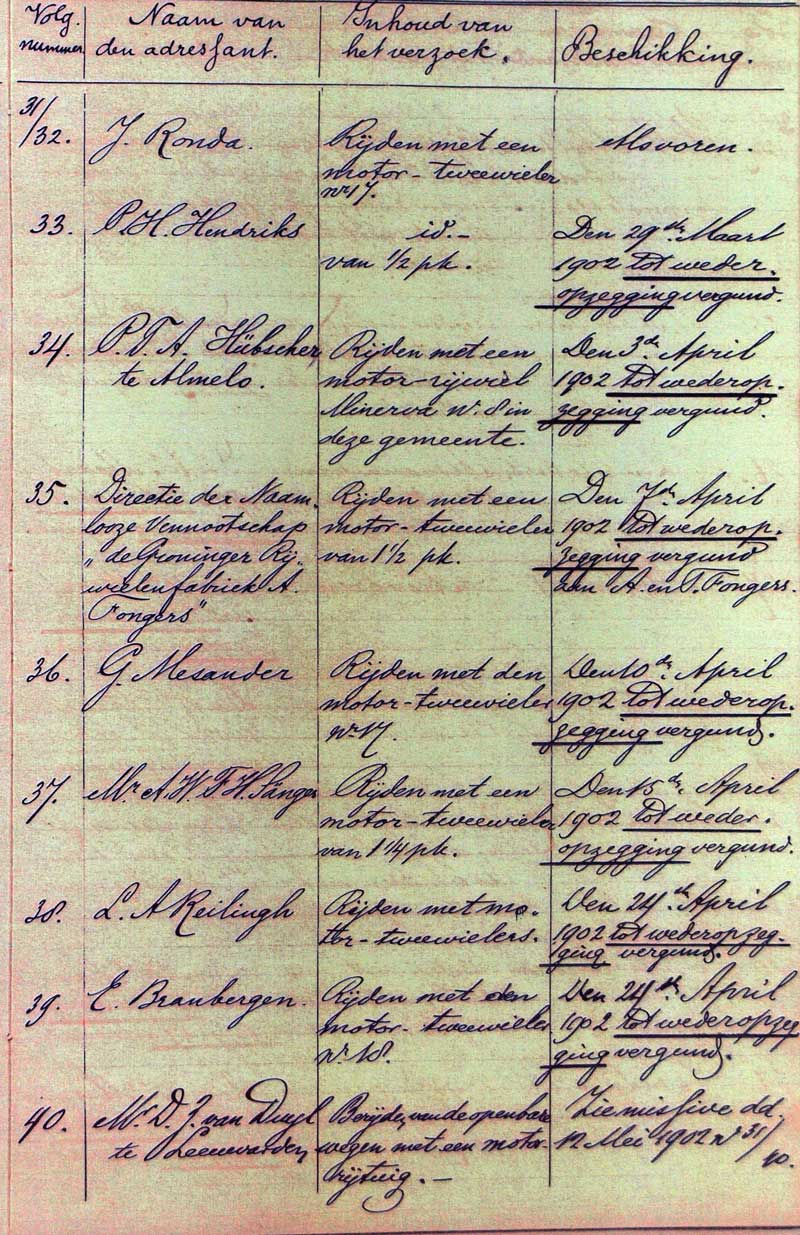 Volg. nummer.
Naam van den adressant.
Inhoud van het verzoek.
Beschikking.
31/32.
J. Ronda.
Rijden met een
motor-tweewieler
nr 17.
Alsvoren.
33.
P.H. Hendriks
id.-
van 1/2 pk.
Den 29sten Maart
1902 tot weder-
opzegging vergund.
34.
P.T.A. Hübscher,
te Almelo.
Rijden met een
motor-rijwiel
Minerva nr. 8 in
deze gemeente.
Den 3den April
1902 tot wederop-
zegging vergund.
35.
Directie der Naam-
looze Vennootschap
„de Groninger Rij-
wielenfabriek A.
Fongers"
Rijden met een
motor-tweewieler
van 1 1/2 pk.
Den 7den April
1902 tot wederop-
zegging vergund
aan A. en T. Fongers.
36.
G. Mesander
Rijden met den
motor-tweewieler
nr 17.
Den 10den April
1902 tot wederop-
zegging vergund.
37.
Mr. A.W.F.H. Sanger
Rijden met een
motor-tweewieler
van 1 1/4 pk.
Den 15den April
1902 tot weder-
opzegging vergund.
38.
L. A Keilingh
Rijden met mo-
tor-tweewielers.
Den 24sten April
1902 tot wederopzeg-
ging vergund.
39.
E. Branbergen.
Rijden met den
motor-tweewieler
nr 18.
Den 24sten April
1902 tot wederopzeg
ging vergund.
40.
Mr D. J. van Duyl
te Leeuwarden,
Berijden van de openbare
wegen met een motor-
rijtuig.-
Zie missive dd.
12 Mei 1902 nr 31/40.